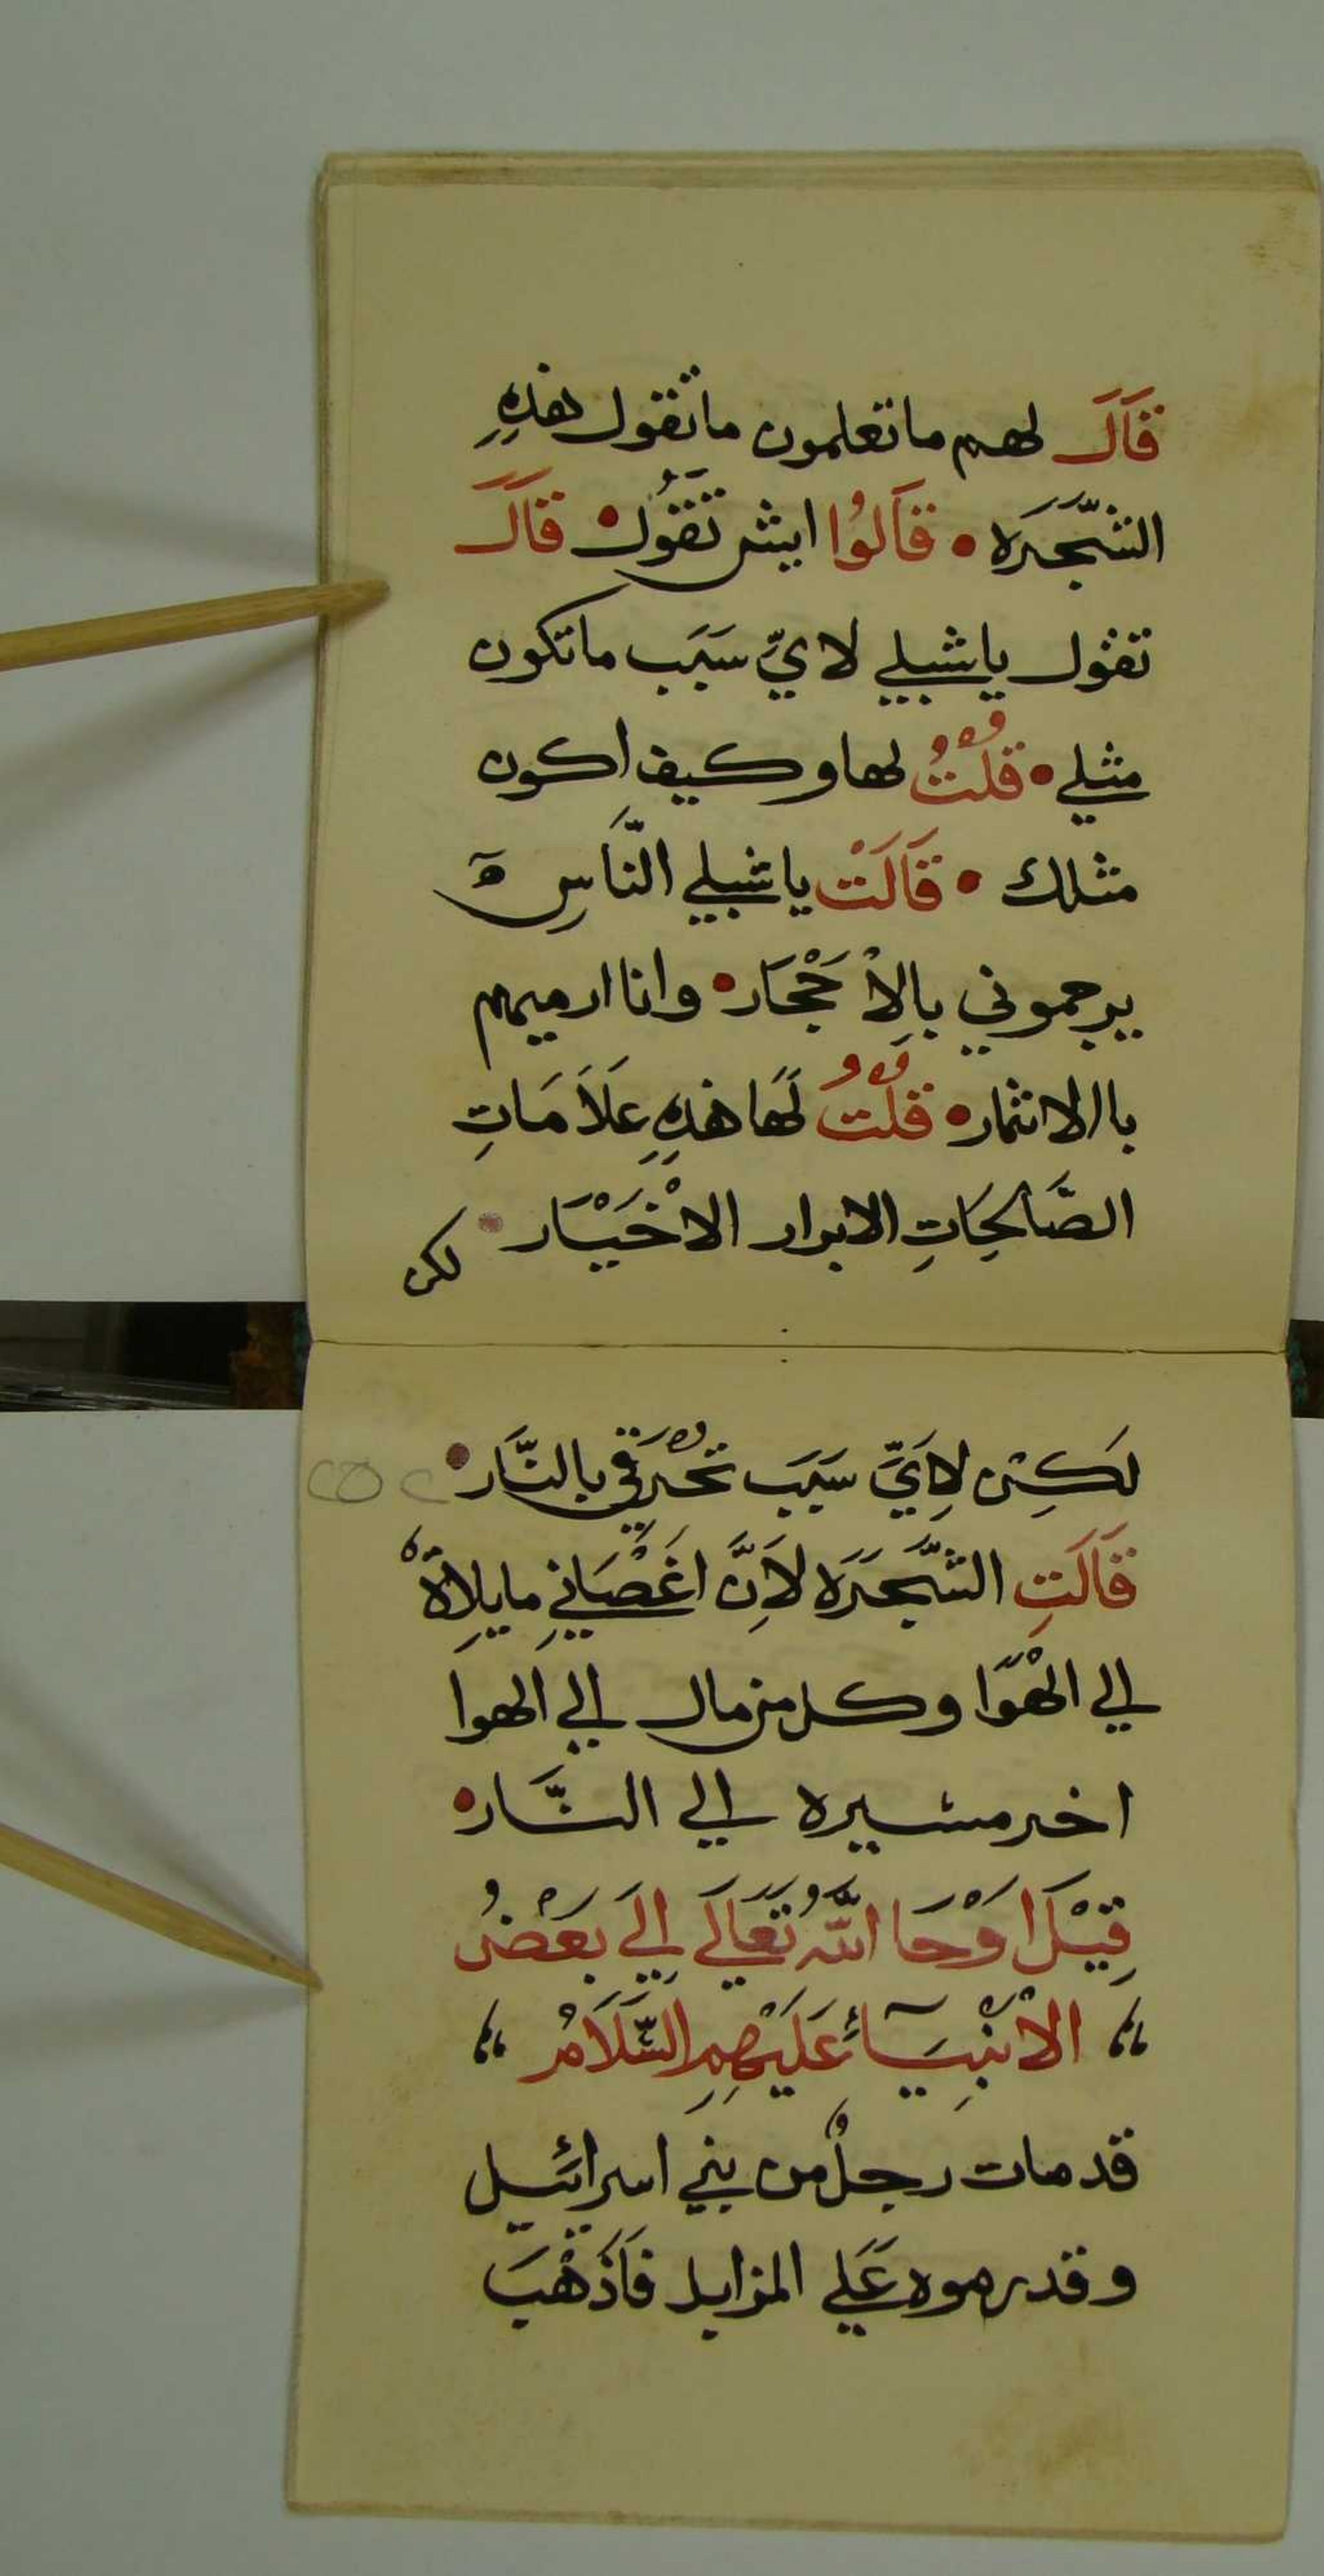 قَالَ لهم ما تعلمون ما تقول هذِهِ
الشَّجَرَه • قَالُوا ايش تَقُول • قَالَ
تقول يا شبلي لايِّ سَبَب ما تكون
مثلي • قُلْتُ لها وكيف اكون
مثلك • قَالَتْ يا شبلي النَّاسِ
يرجموني بالاْحْجَار • وانا ارميهم
باالاثمار • قُلْتُ لَهَا هذِهِ عَلَامَاتِ
الصَّالِحَاتِ الابرار الاخْيَار •
لكن
لَكِن لِايِّ سَبَب تحُرَقي بالنَّار •
قَالَتِ الشَّجَرَه لاَنَّ اغْصَاني مايلِاةٌ
الي الهْوَا وكل من مال الي الهوا
اخر مسيره الي النَّار •
قِيْلَ اوْحَا اللَّهُ تَعَالَي اِلَي بَعْضُ
الاْنْبِيَآئُ عَلَيْهِمِ السَّلَامُ
قد مات رجلٌ من بني اسرائيل
وقد رموه عَلَي المزابل فَاَذْهَبَ